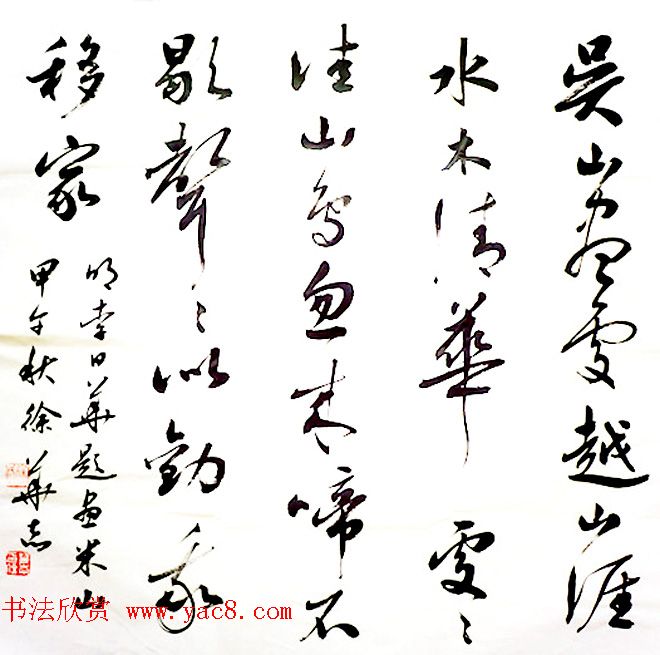 吳山盡處越山涯
水木清華處〻
佳山鳥忽来啼不
歇聲〻似勸我
移家
明李日華題畫米山
甲午秋徐華志
书法欣赏 www.yac8.com